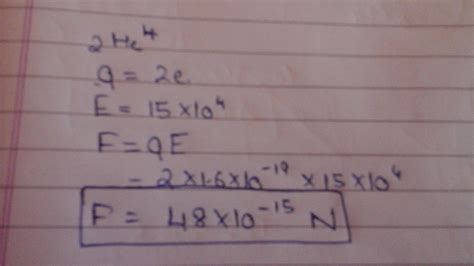 ₂He⁴
q = 2e.
E = 15×10⁴
F = qE
= 2×1.6×10⁻¹⁹ ×15×10⁴
F = 48×10⁻¹⁵ N